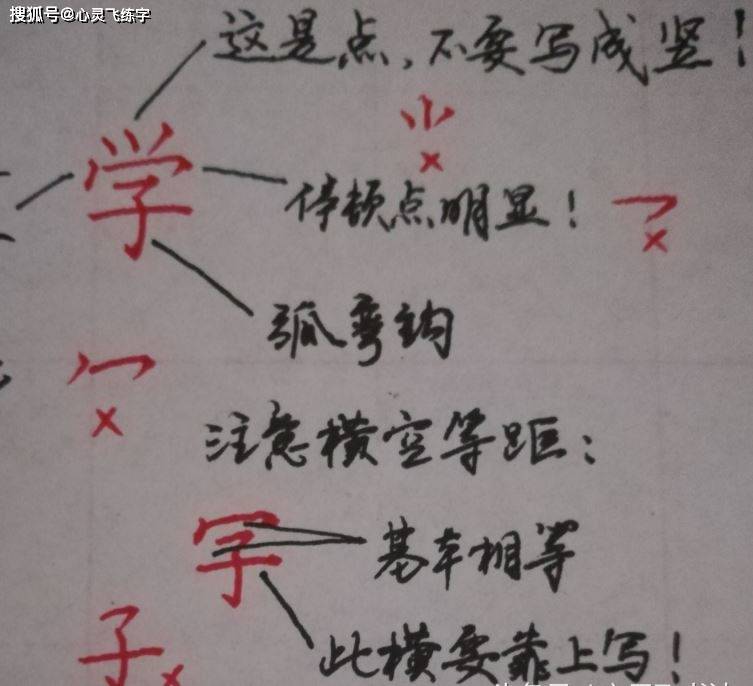 搜狐号@心灵飞练字
这是点,不要写成竖!
学
停顿点明显!
弧弯钩
注意横空等距:
基本相等
此横要靠上写!
子